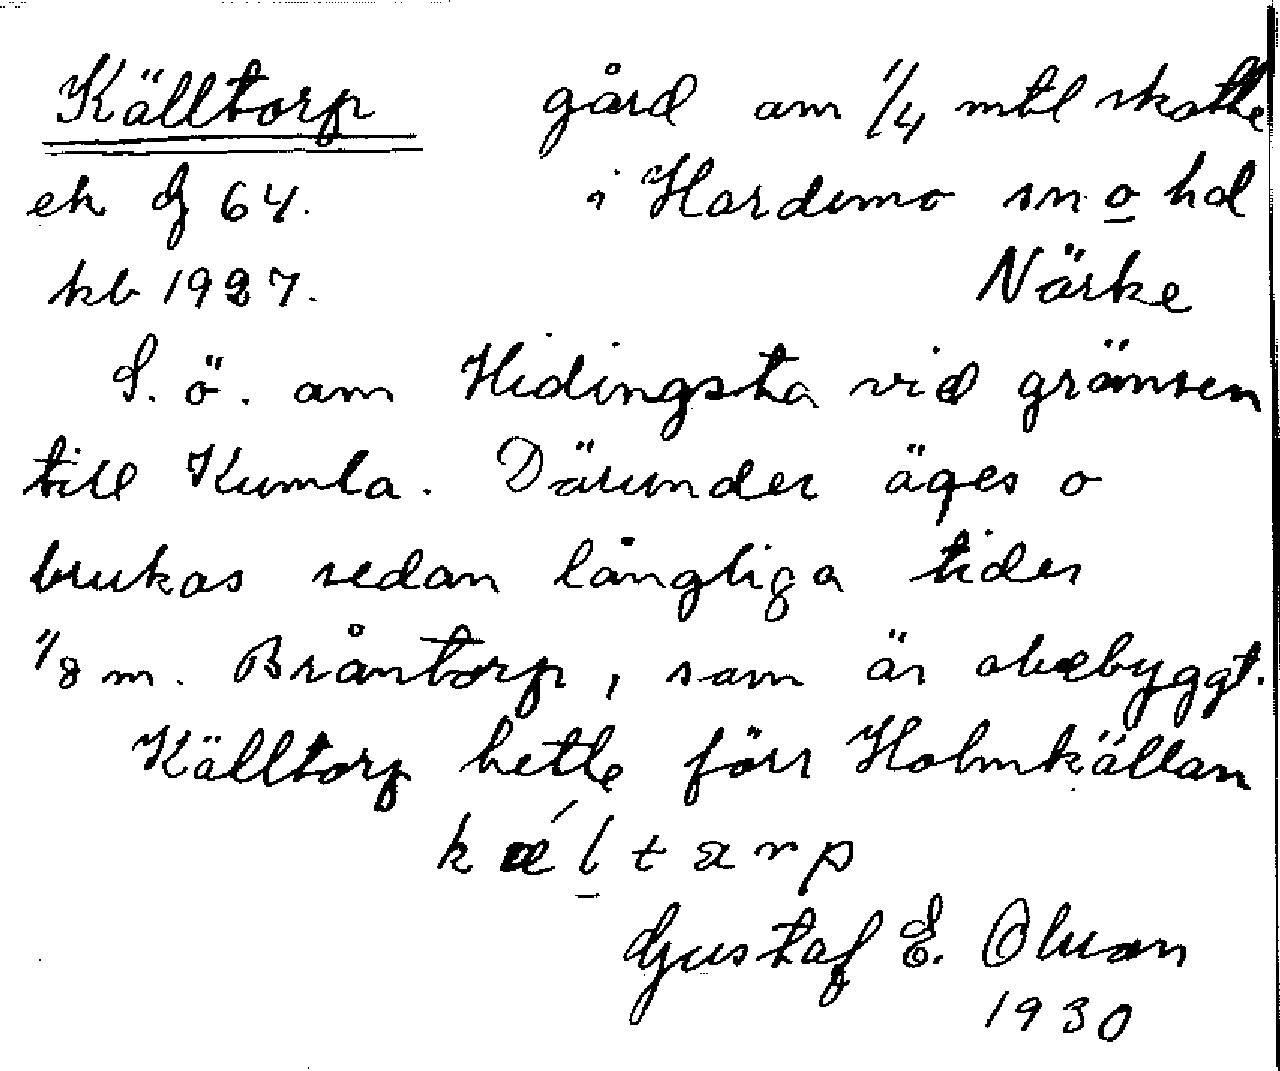 Källtorp gård om 1/4 mtl skatte
ek G 64. i Hardemo sn o hd
kb 1927. Närke
S. ö. om Hidingsta vid gränsen
till Kumla. Därunder äges o
brukas sedan långliga tider
1/8 m. Bråntorp, som är obebyggt.
Källtorp hette förr Holmkällan
kǽltarp
Gustaf E. Olsson
1930